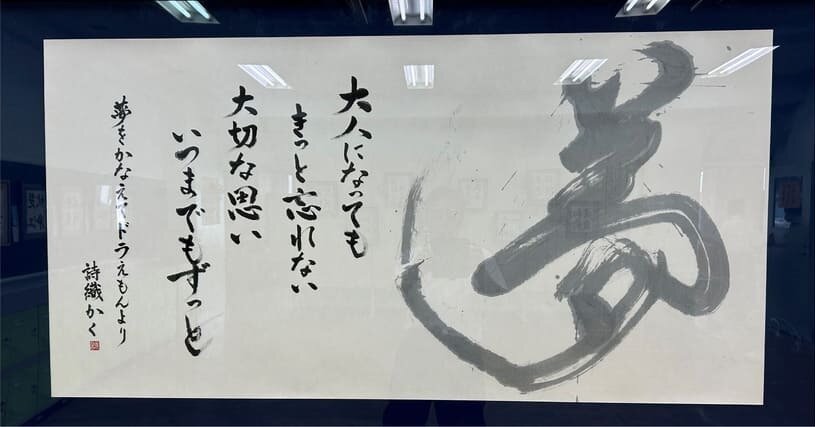 夢
大人になっても
きっと忘れない
大切な思い
いつまでもずっと
夢をかなえてドラえもんより
詩織かく